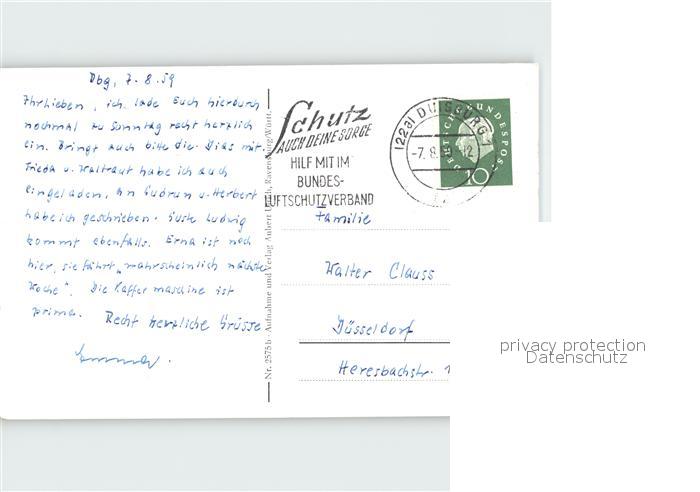 Dbg, 7.8.59
Ihr Lieben, ich lade Euch hierdurch
nochmal zu Sonntag recht herzlich
ein. Bringt auch bitte die Dias mit.
Frieda u. Waltraut habe ich auch
eingeladen, an Gudrun u. Herbert
habe ich geschrieben. Guste Ludwig
kommt ebenfalls. Erna ist noch
hier, sie fährt "wahrscheinlich nächste
Woche". Die Kaffeemaschine ist
prima. Recht herzliche Grüsse
Nr. 2575 b · Aufnahme und Verlag Aubert Ravensburg/Württ.
Schutz
AUCH DEINE SORGE
HILF MIT IM
BUNDES-
LUFTSCHUTZVERBAND
(22a) DUISBURG
-7.8.59-12
DEUTSCHE BUNDESPOST
10
Familie
Walter Clauss
Düsseldorf
Heresbachstr. 1
privacy protection
Datenschutz